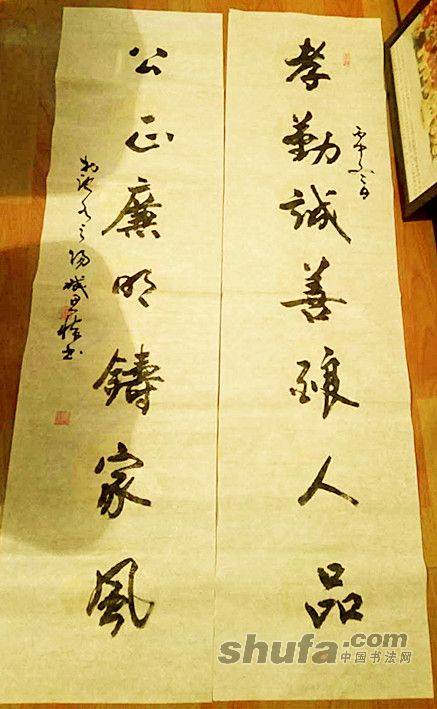 孝勤誠善釀人品
公正廉明鑄家風
shufa.com
中国书法网